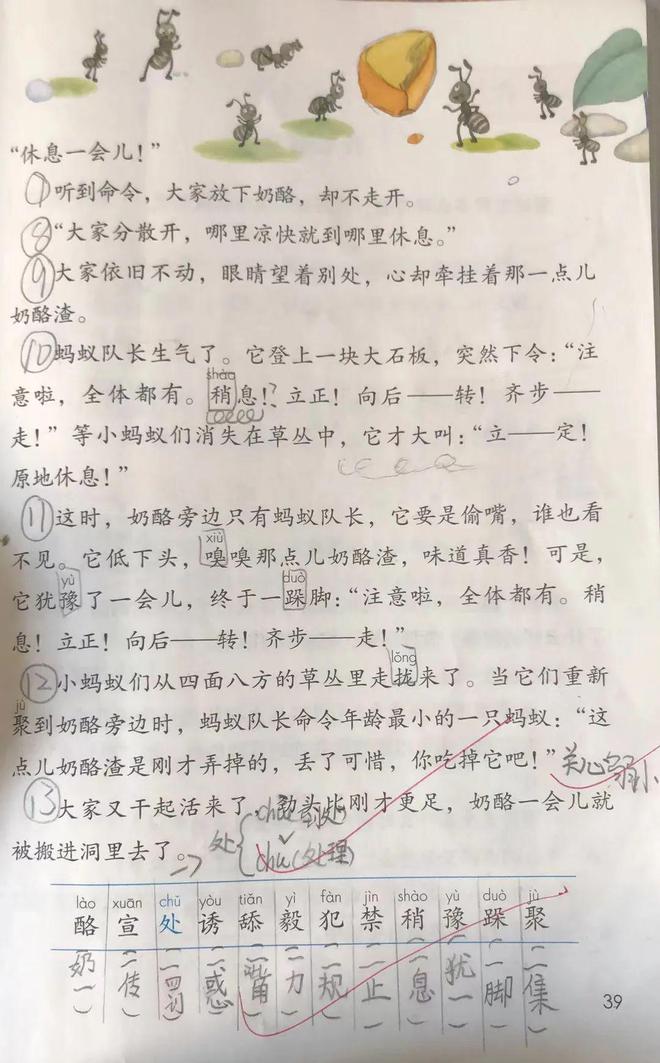 “休息一会儿！”
⑦听到命令，大家放下奶酪，却不走开。
⑧“大家分散开，哪里凉快就到哪里休息。”
⑨大家依旧不动，眼睛望着别处，心却牵挂着那一点儿
奶酪渣。
⑩蚂蚁队长生气了。它登上一块大石板，突然下令：“注
shào
意啦，全体都有。稍息！立正！向后——转！齐步——
走！”等小蚂蚁们消失在草丛中，它才大叫：“立——定！
原地休息！”
⑪这时，奶酪旁边只有蚂蚁队长，它要是偷嘴，谁也看
xiù
不见。它低下头，嗅嗅那点儿奶酪渣，味道真香！可是，
yù duò
它犹豫了一会儿，终于一跺脚：“注意啦，全体都有。稍
息！立正！向后——转！齐步——走！”
lǒng
⑫小蚂蚁们从四面八方的草丛里走拢来了。当它们重新
jù
聚到奶酪旁边时，蚂蚁队长命令年龄最小的一只蚂蚁：“这
点儿奶酪渣是刚才弄掉的，丢了可惜，你吃掉它吧！”
关心弱小
⑬大家又干起活来了，劲头比刚才更足，奶酪一会儿就
被搬进洞里去了。
处
chǔ(处理)
lào xuān chǔ yòu tiǎn yì fàn jìn shào yù duò jù
酪 宣 处 诱 舔 毅 犯 禁 稍 豫 跺 聚
(奶一) (一传) (一罚) (一惑) (一嘴) (一力) (一规) (一止) (一息) (犹一) (一脚) (一集)
39